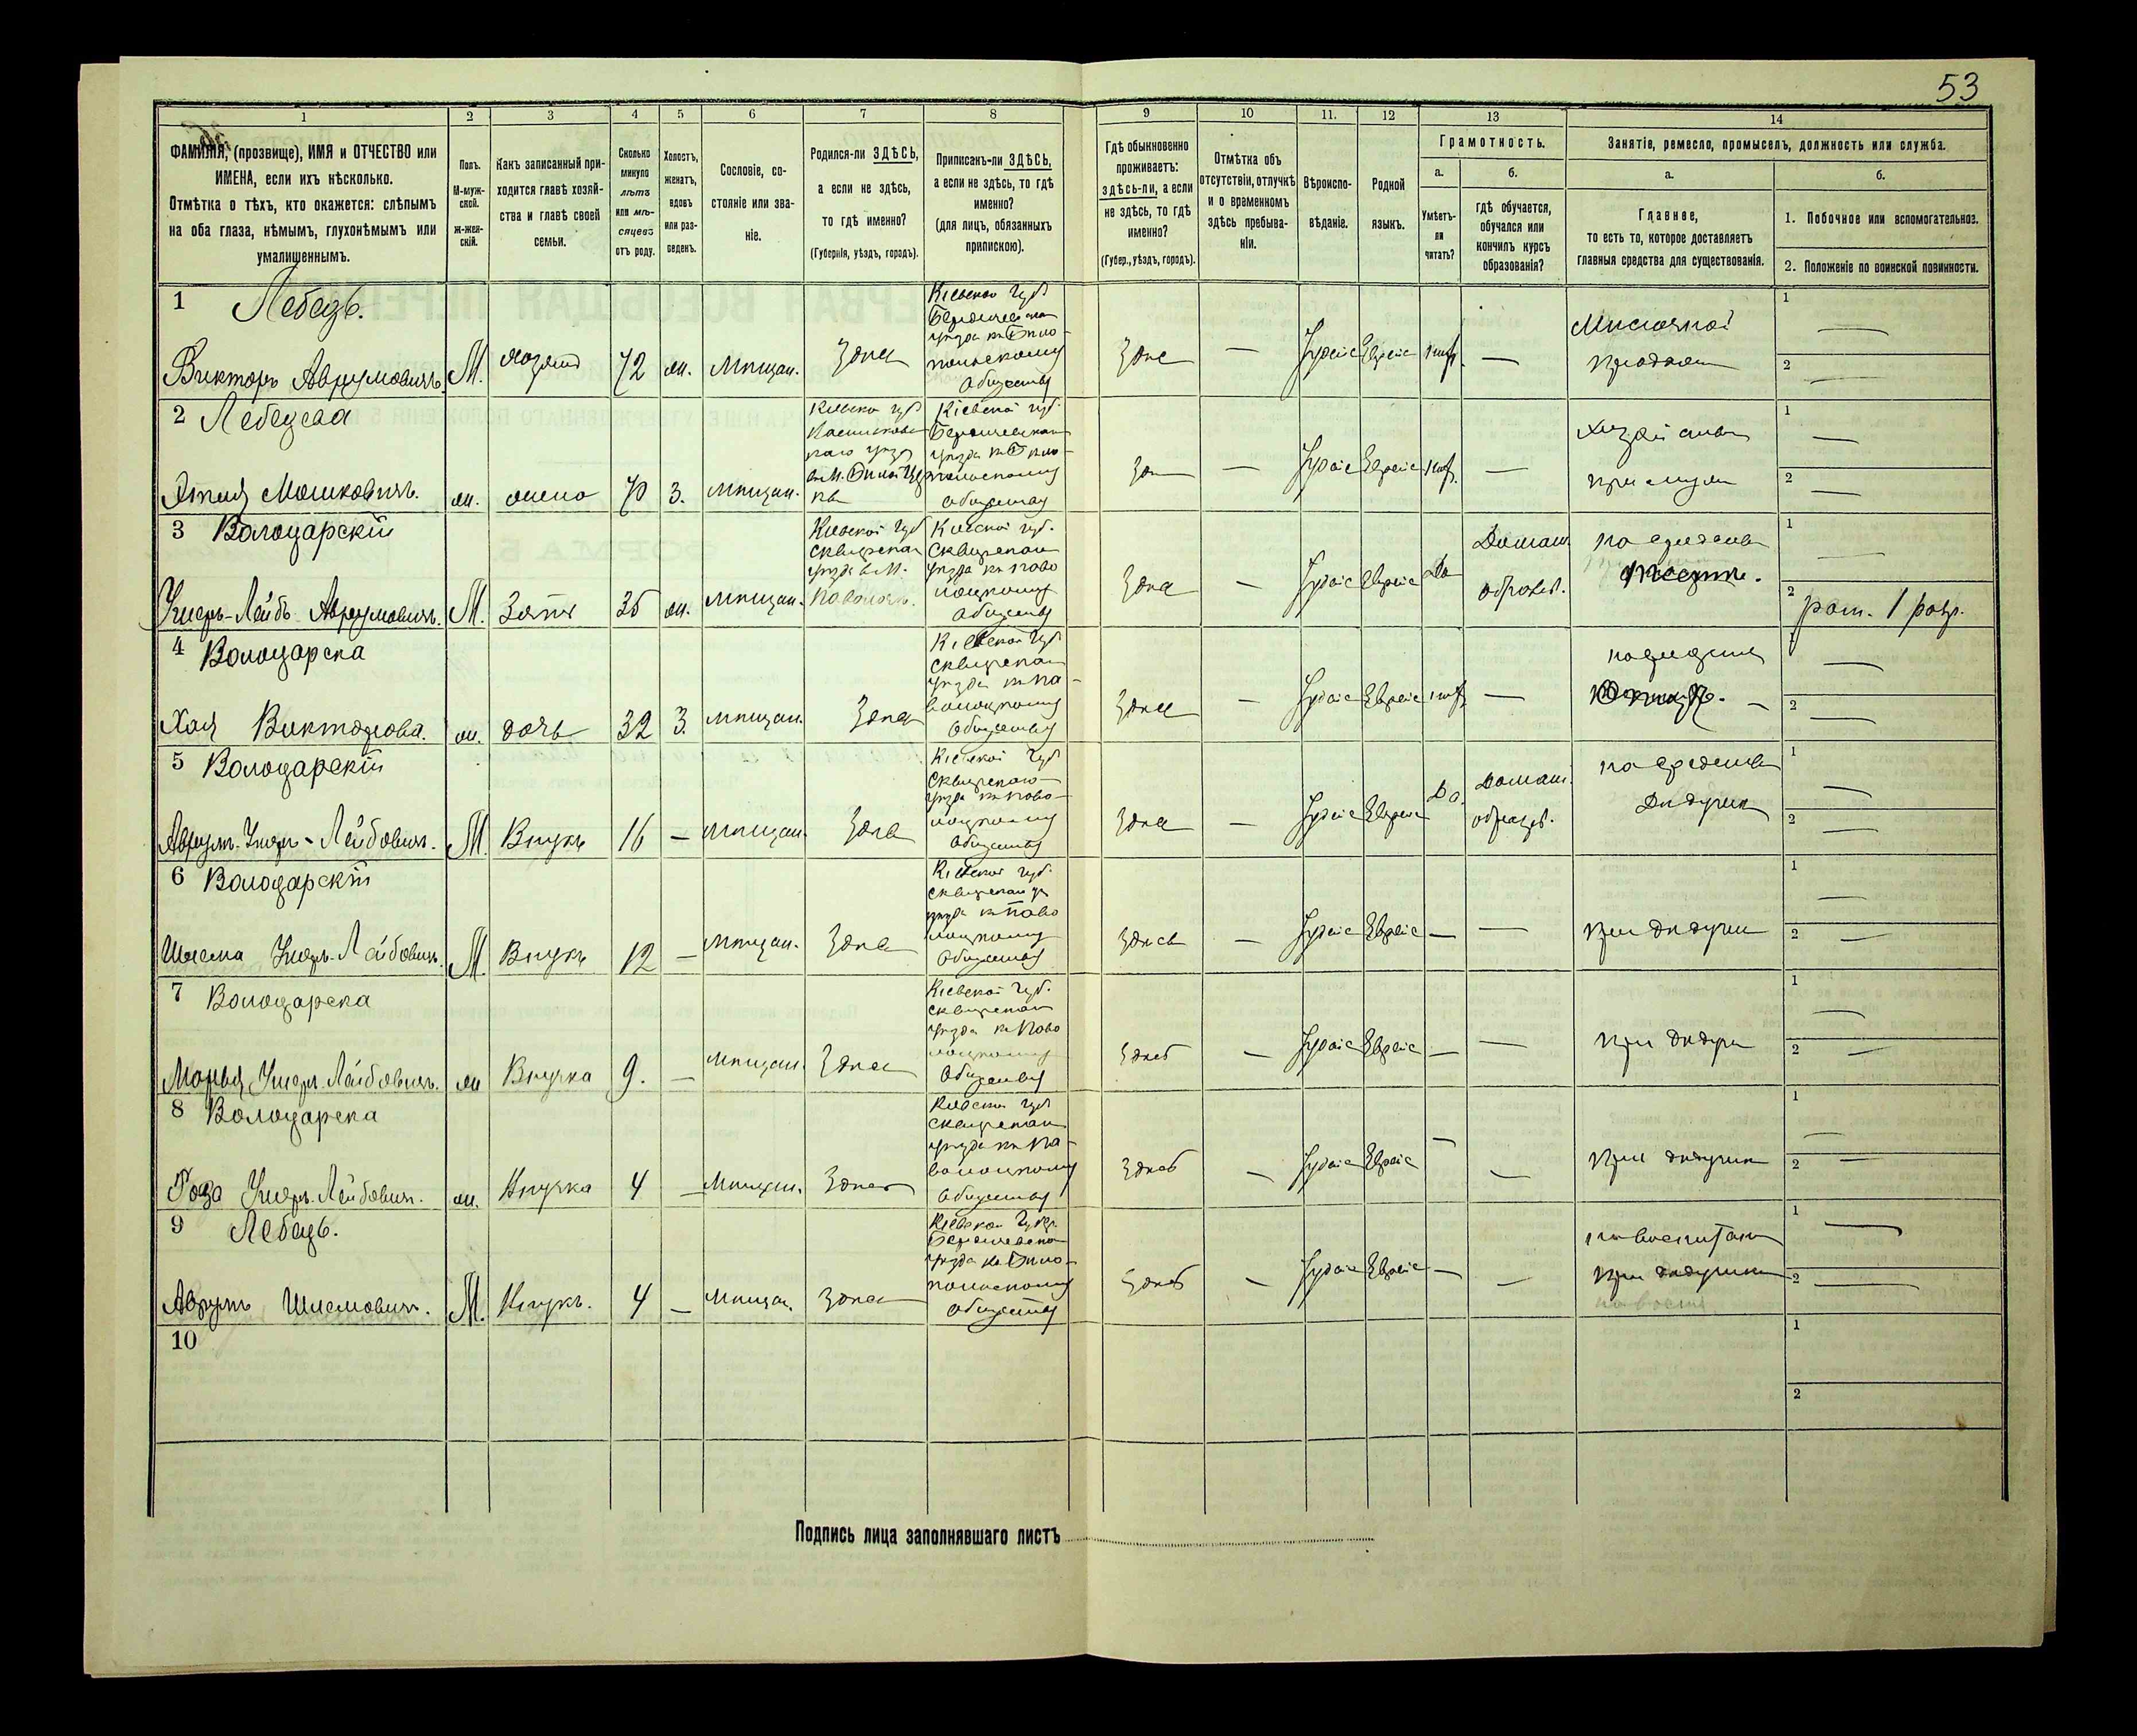 53
1
2
3
4
5
6
7
8
9
10
11.
12
13
14
ФАМИЛІЯ, (прозвище), ИМЯ и ОТЧЕСТВО или
ИМЕНА, если ихъ нѣсколько.
Отмѣтка о тѣхъ, кто окажется: слѣпымъ
на оба глаза, нѣмымъ, глухонѣмымъ или
умалишеннымъ.
Полъ.
М-муж-
ской.
ж-жен-
скій.
Какъ записанный при-
ходится главѣ хозяй-
ства и главѣ своей
семьи.
Сколько
минуло
лѣтъ
или мѣ-
сяцевъ
отъ роду.
Холостъ,
женатъ,
вдовъ
или раз-
веденъ.
Сословіе, со-
стояніе или зва-
ніе.
Родился-ли ЗДѢСЬ,
а если не здѣсь,
то гдѣ именно?
(Губернія, уѣздъ, городъ).
Приписанъ-ли ЗДѢСЬ,
а если не здѣсь, то гдѣ
именно?
(для лицъ, обязанныхъ
припискою).
Гдѣ обыкновенно
проживаетъ:
здѣсь-ли, а если
не здѣсь, то гдѣ
именно?
(Губер., уѣздъ, городъ).
Отмѣтка объ
отсутствіи, отлучкѣ
и о временномъ
здѣсь пребыва-
ніи.
Вѣроиспо-
вѣданіе.
Родной
языкъ.
Грамотность.
а.
Умѣетъ-
ли
читать?
б.
гдѣ обучается,
обучался или
кончилъ курсъ
образованія?
Занятіе, ремесло, промыселъ, должность или служба.
а.
Главное,
то есть то, которое доставляетъ
главныя средства для существованія.
б.
1. Побочное или вспомогательное.
2. Положеніе по воинской повинности.
1 Лебедь.
Викторъ Аврумовичъ М. хозяинъ 72 ж. мѣщан. Здѣсь
Кіевской губ.
Бердичевскаго
уѣзда къ Бѣло-
польскому
обществу
Здѣсь — Іудейс Еврейс нѣт. —
1 —
2 —
2 Лебедева
Мошковичъ. ж. жена 70 З. мѣщан.
Кіевской губ.
Кіевской губ.
Бердичевскаго
уѣзда къ Бѣло-
польскому
обществу
— Іудейс Еврейс нѣт. —
при мужѣ
1 —
2 —
3 Володарскій
Ушеръ-Лейбъ Аврумовичъ. М. Зять 35 ж. мѣщан.
Кіевской губ.
Сквирскаго
уѣзда въ М.
Паволочь.
Кіевской губ.
Сквирскаго
уѣзда къ Паво
лоцкому
обществу
Здѣсь — Іудейс Еврейс Да
Домаш.
образов.
на средства
тестя.
1 —
2 рат. 1 разр.
4 Володарска
Хая Викторова. ж. дочь 32 З. мѣщан. Здѣсь
Кіевской губ.
Сквирскаго
уѣзда къ Па-
волоцкому
обществу
Здѣсь — Іудейс Еврейс нѣт. —
1 —
2 —
5 Володарскій
Аврумъ Ушеръ-Лейбовичъ. М. Внукъ 16 — мѣщан. Здѣсь
Кіевской губ.
Сквирскаго
уѣзда къ Паво-
лоцкому
обществу
Здѣсь — Іудейс Еврейс Да.
Домаш.
образов.
на средства
Дѣдушки
1 —
2 —
6 Володарскій
Шлема Ушеръ-Лейбовичъ. М. Внукъ 12 — мѣщан. Здѣсь
Кіевской губ.
уѣзда къ Паво
лоцкому
обществу
Здѣсь — Іудейс Еврейс — —
при дѣдушкѣ
1 —
2 —
7 Володарска
Ушеръ-Лейбовичъ. ж Внучка 9. — мѣщан. Здѣсь
Кіевской губ.
Сквирскаго
уѣзда къ Паво
лоцкому
обществу
Здѣсь — Іудейс Еврейс — —
1 —
2 —
8 Володарска
Роза Ушеръ-Лейбовичъ. ж. Внучка 4 — Мѣщан. Здѣсь
Кіевской губ.
Сквирскаго
уѣзда къ Па-
волоцкому
обществу
Здѣсь — Іудейс Еврейс — —
при дѣдушкѣ
1 —
2 —
9 Лебедь.
Аврумъ Шлемовичъ. М. Внукъ. 4 — Мѣщан. Здѣсь
Кіевской губер.
Бердичевскаго
уѣзда къ Бѣло-
польскому
обществу
Здѣсь — Іудейс Еврейс — —
при дѣдушкѣ
1 —
2 —
10
1
2
Подпись лица заполнявшаго листъ